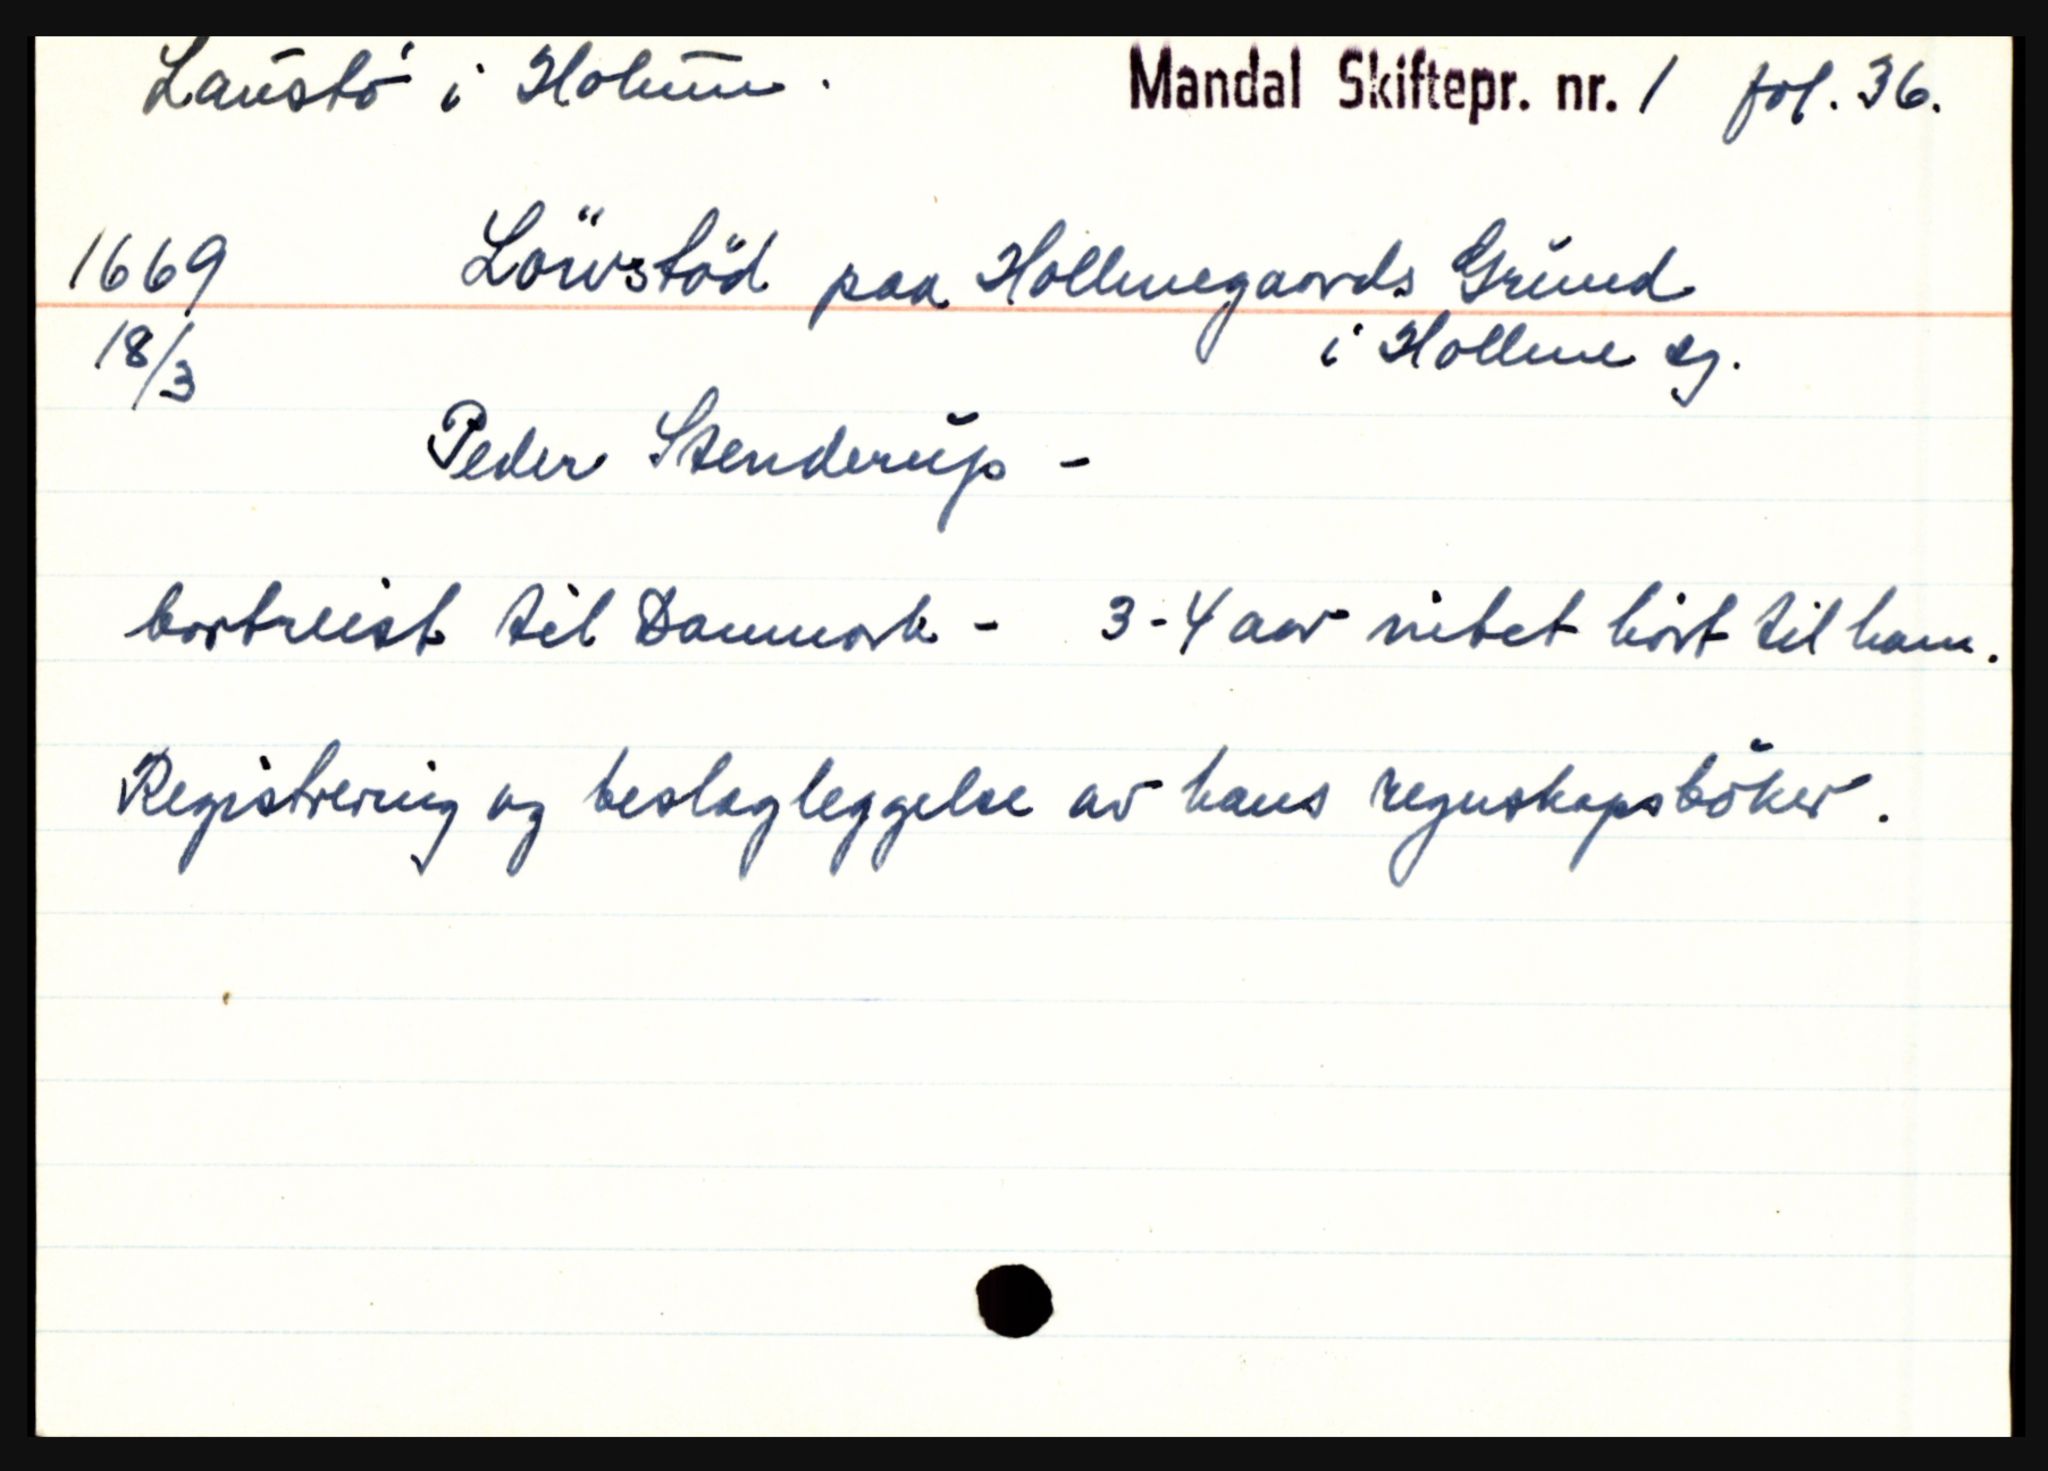 Laustö i Holum. Mandal Skiftepr. nr. 1 fol. 36.
1669 Löwstöd paa Hollmegaards Grund
18/3 i Hollme sg.
Peder Stenderup -
bortreist til Danmark - 3-4 aar intet hört til ham.
Registrering og beslagleggelse av hans regnskapsböker.